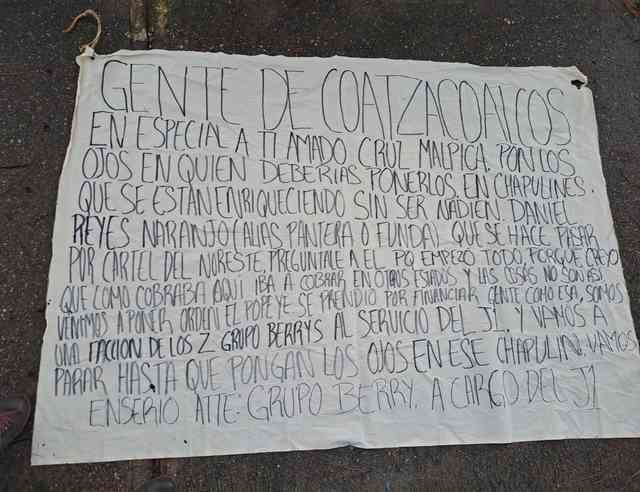 GENTE DE COATZACOALCOS
EN ESPECIAL A TI AMADO CRUZ MALPICA. PON LOS
OJOS EN QUIEN DEBERIAS PONERLOS, EN CHAPULINES
QUE SE ESTAN ENRIQUECIENDO SIN SER NADIEN. DANIEL
REYES NARANJO (ALIAS PANTERA O FUNDA) QUE SE HACE PASAR
POR CARTEL DEL NORESTE, PREGUNTALE A EL PQ EMPEZO TODO, PORQUE CREYO
QUE COMO COBRABA AQUI IBA A COBRAR EN OTROS ESTADOS Y LAS COSAS NO SON ASI
VENIMOS A PONER ORDEN EL POPEYE SE PRENDIO POR FINANCIAR GENTE COMO ESA, SOMOS
UNA FACCION DE LOS Z GRUPO BERRYS AL SERVICIO DEL J1. Y VAMOS A
PARAR HASTA QUE PONGAN LOS OJOS EN ESE CHAPULIN. VAMOS
ENSERIO ATTE: GRUPO BERRY. A CARGO DEL J1